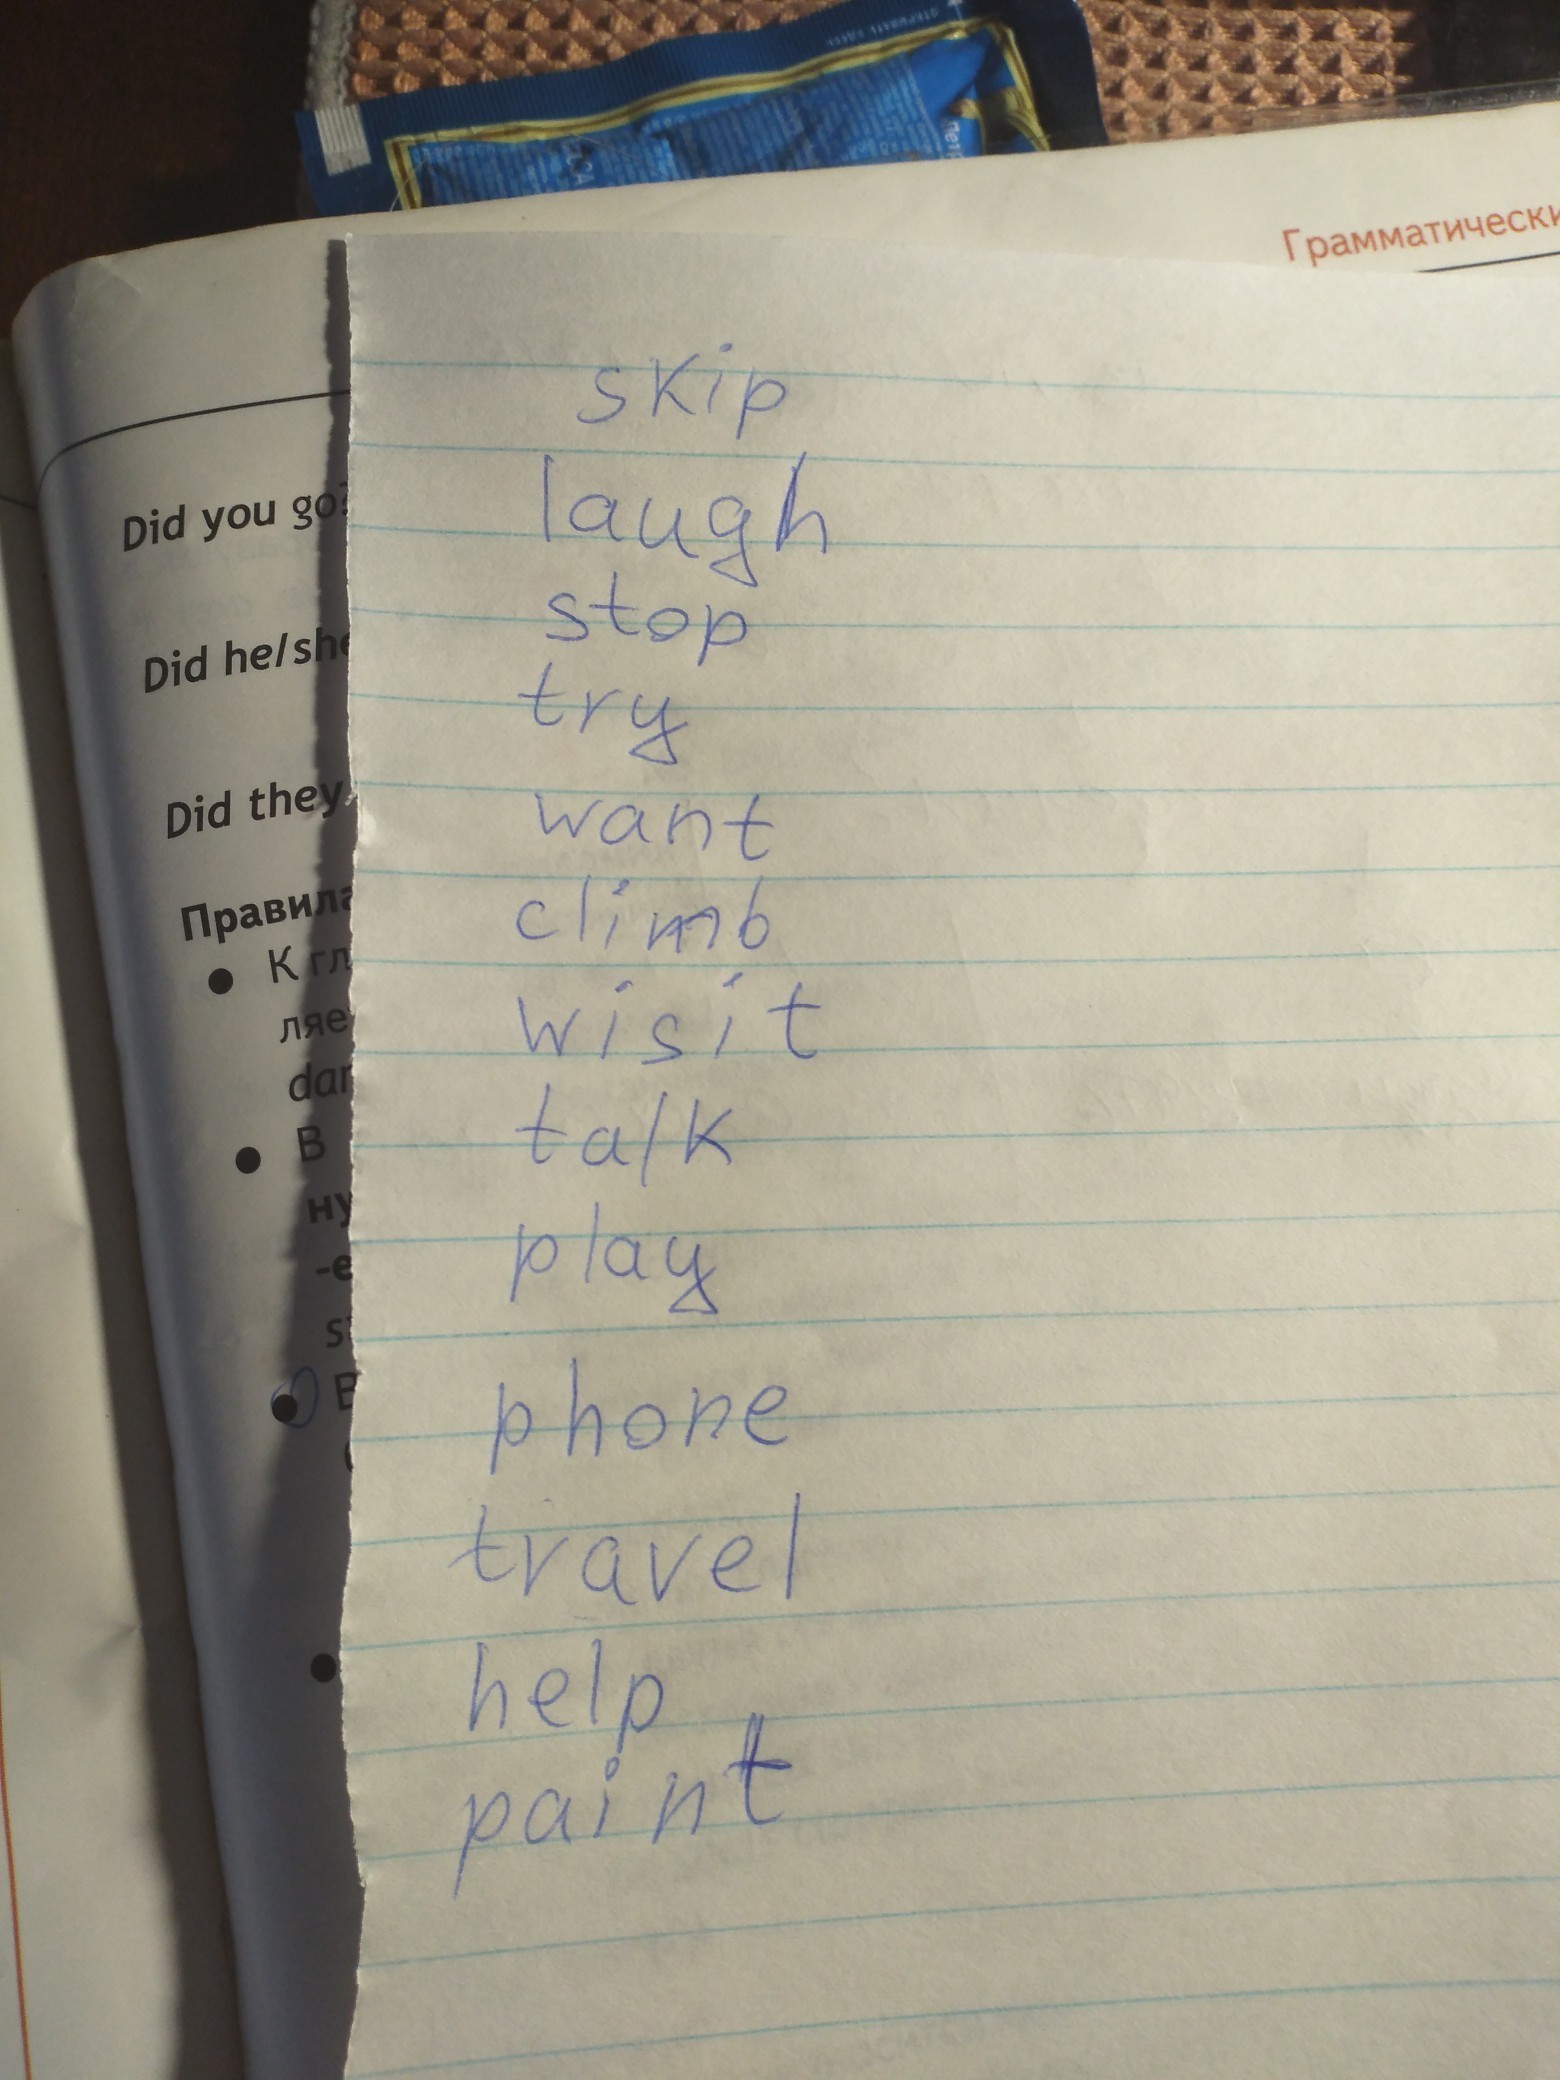 ОТКРЫВАТЬ ЗДЕСЬ
Грамматически
skip
laugh
Did you go?
stop
Did he/she
try
Did they
want
Правила
climb
● К гл
wisit
ляе
dar
talk
● В
ну
play
-е
st
phone
● В
travel
help
paint